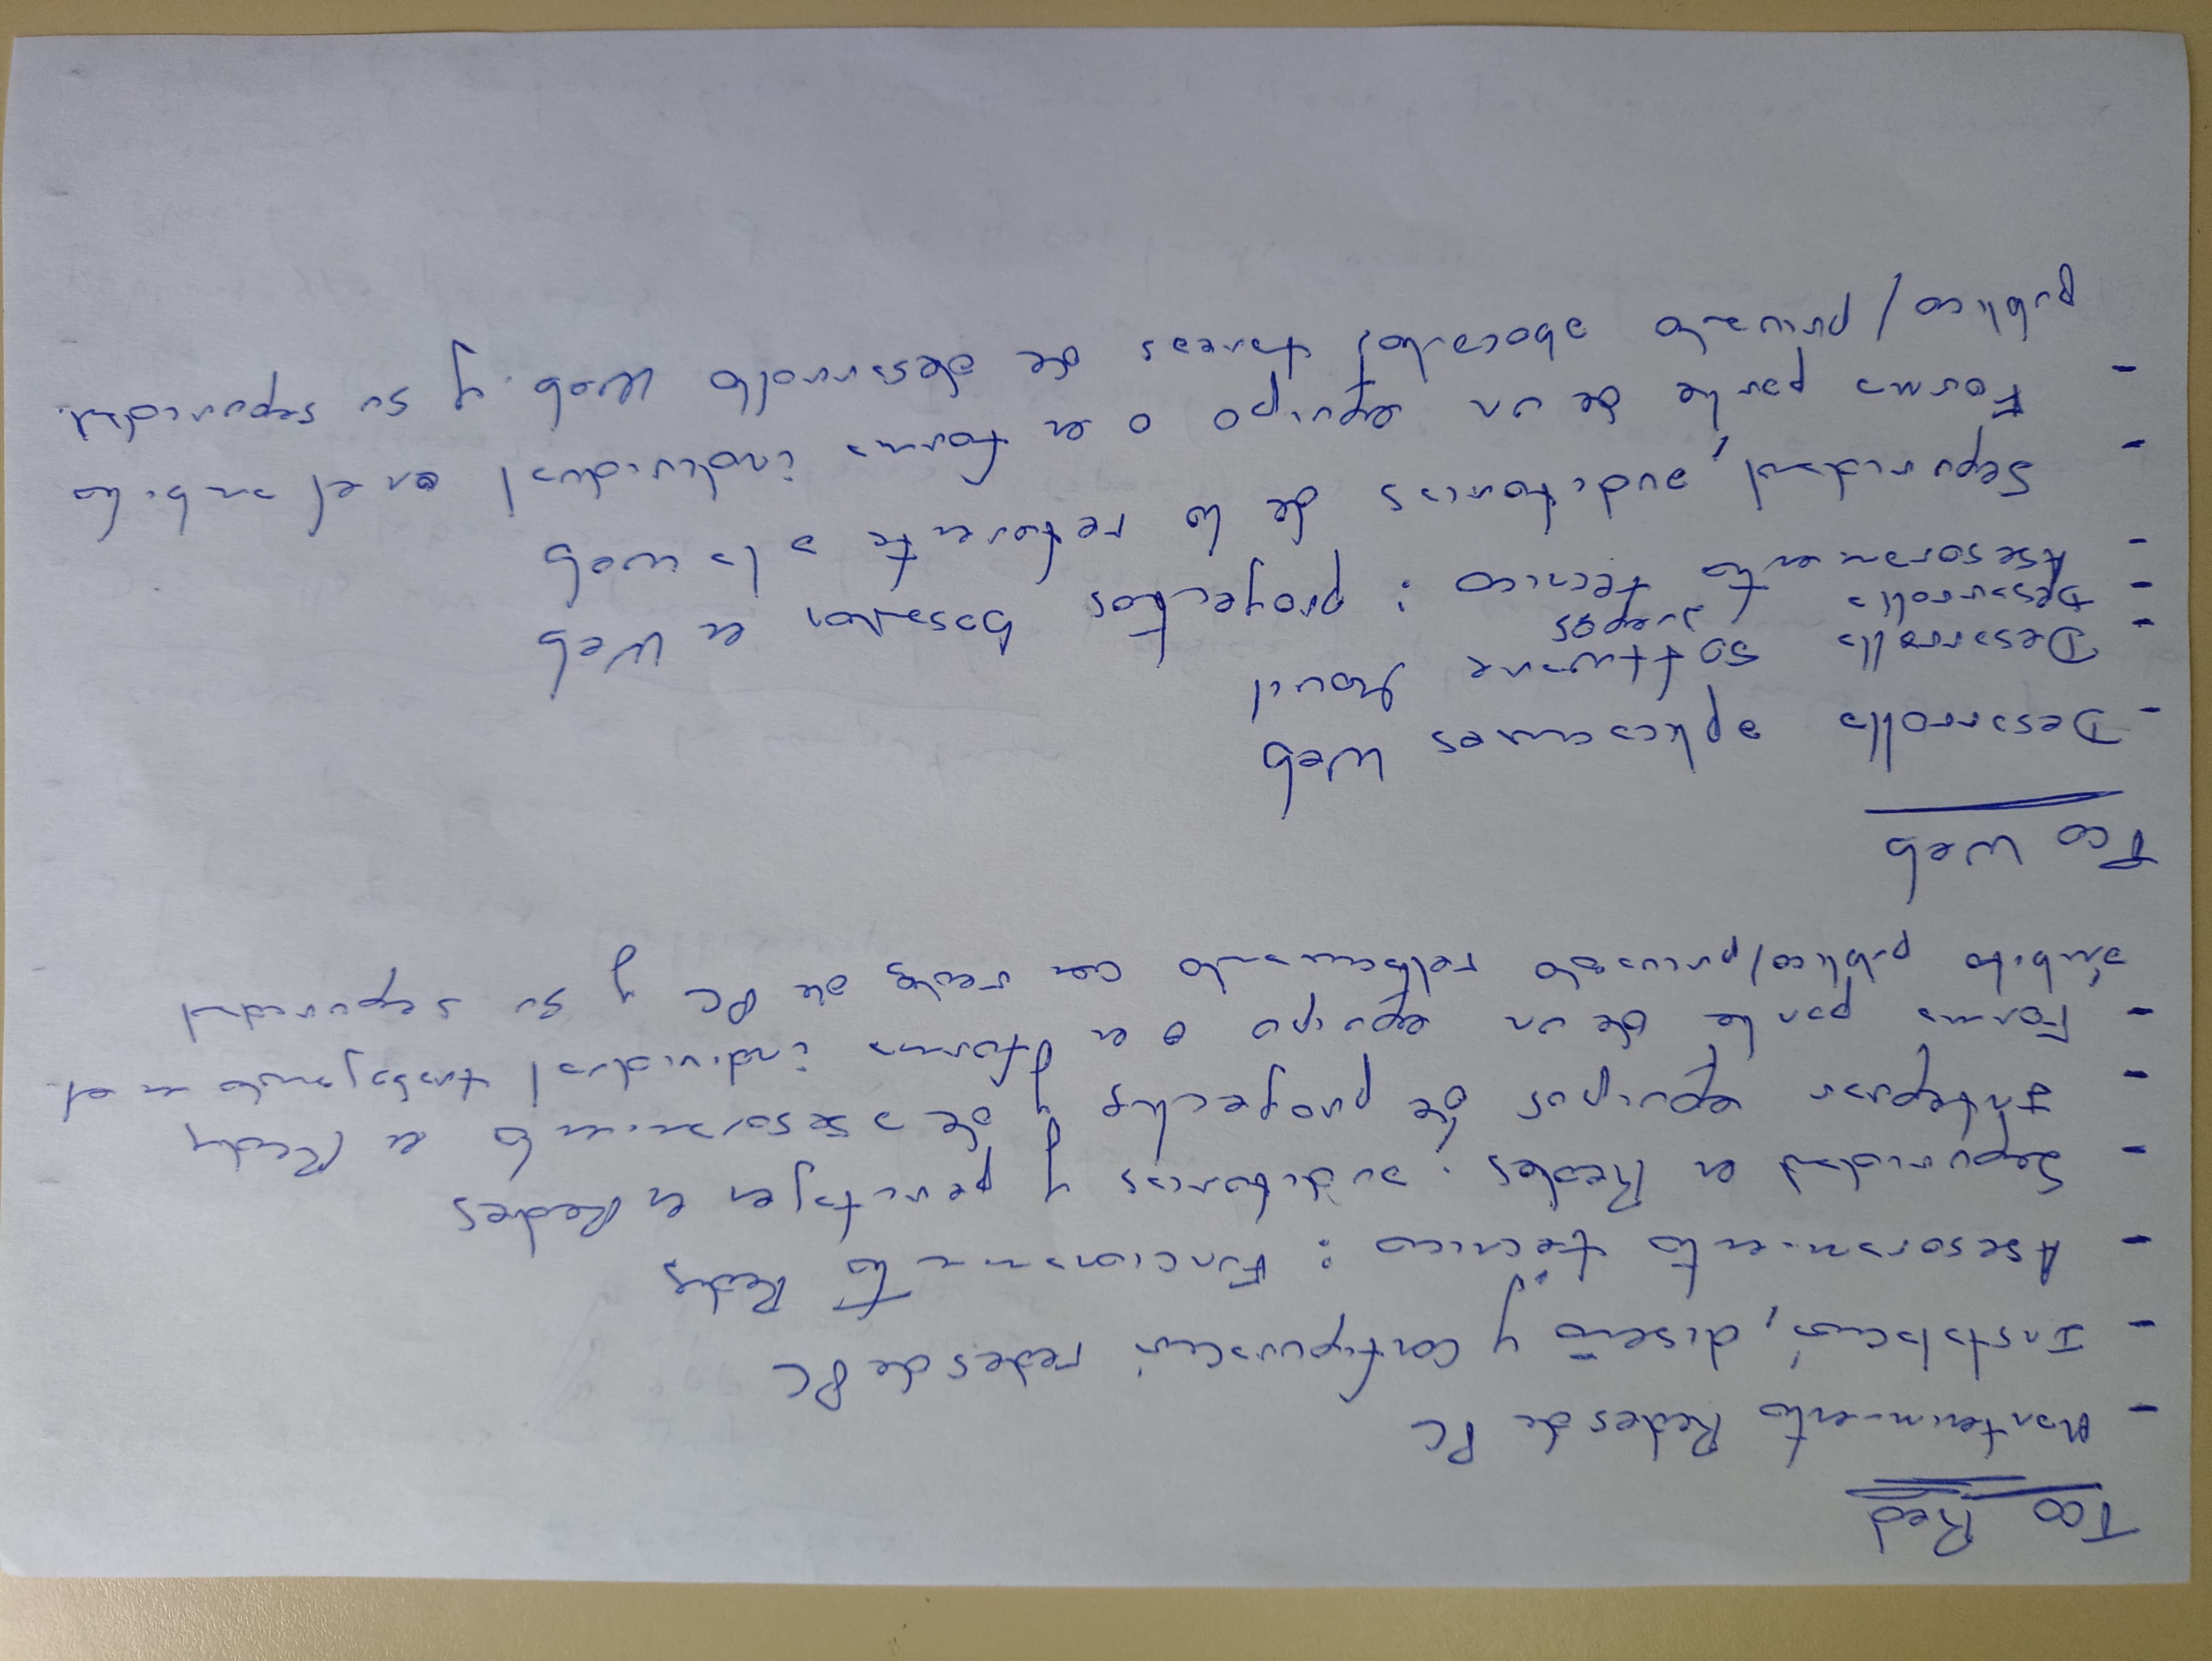 Tco Red
- Mantenimiento Redes de PC
- Instalación, diseño y configuración redes de PC
- Asesoramiento técnico : Funcionamiento Redes
- Seguridad en Redes, auditorias y peritajes en Redes
- Integrar equipos de proyectos y de asesoramiento en Redes
- Forma parte de un equipo o en forma individual trabajando en el
ámbito publico/privado relacionado con redes de PC y su seguridad
Tco Web
- Desarrollo aplicaciones Web
- Desarrollo software Movil
- Desarrollo juegos
- Asesoramiento técnico : proyectos basados en Web
- Seguridad, auditorias de lo referente a la web
- Forma parte de un equipo o en forma individual en el ambito
publico/privado abocado tareas de desarrollo Web y su seguridad.